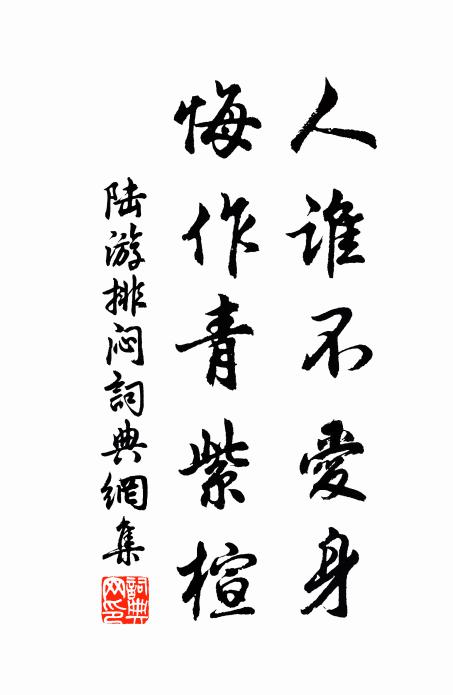 人誰不愛身
悔作青紫楦
陆游排闷詞典網集
詞典网印